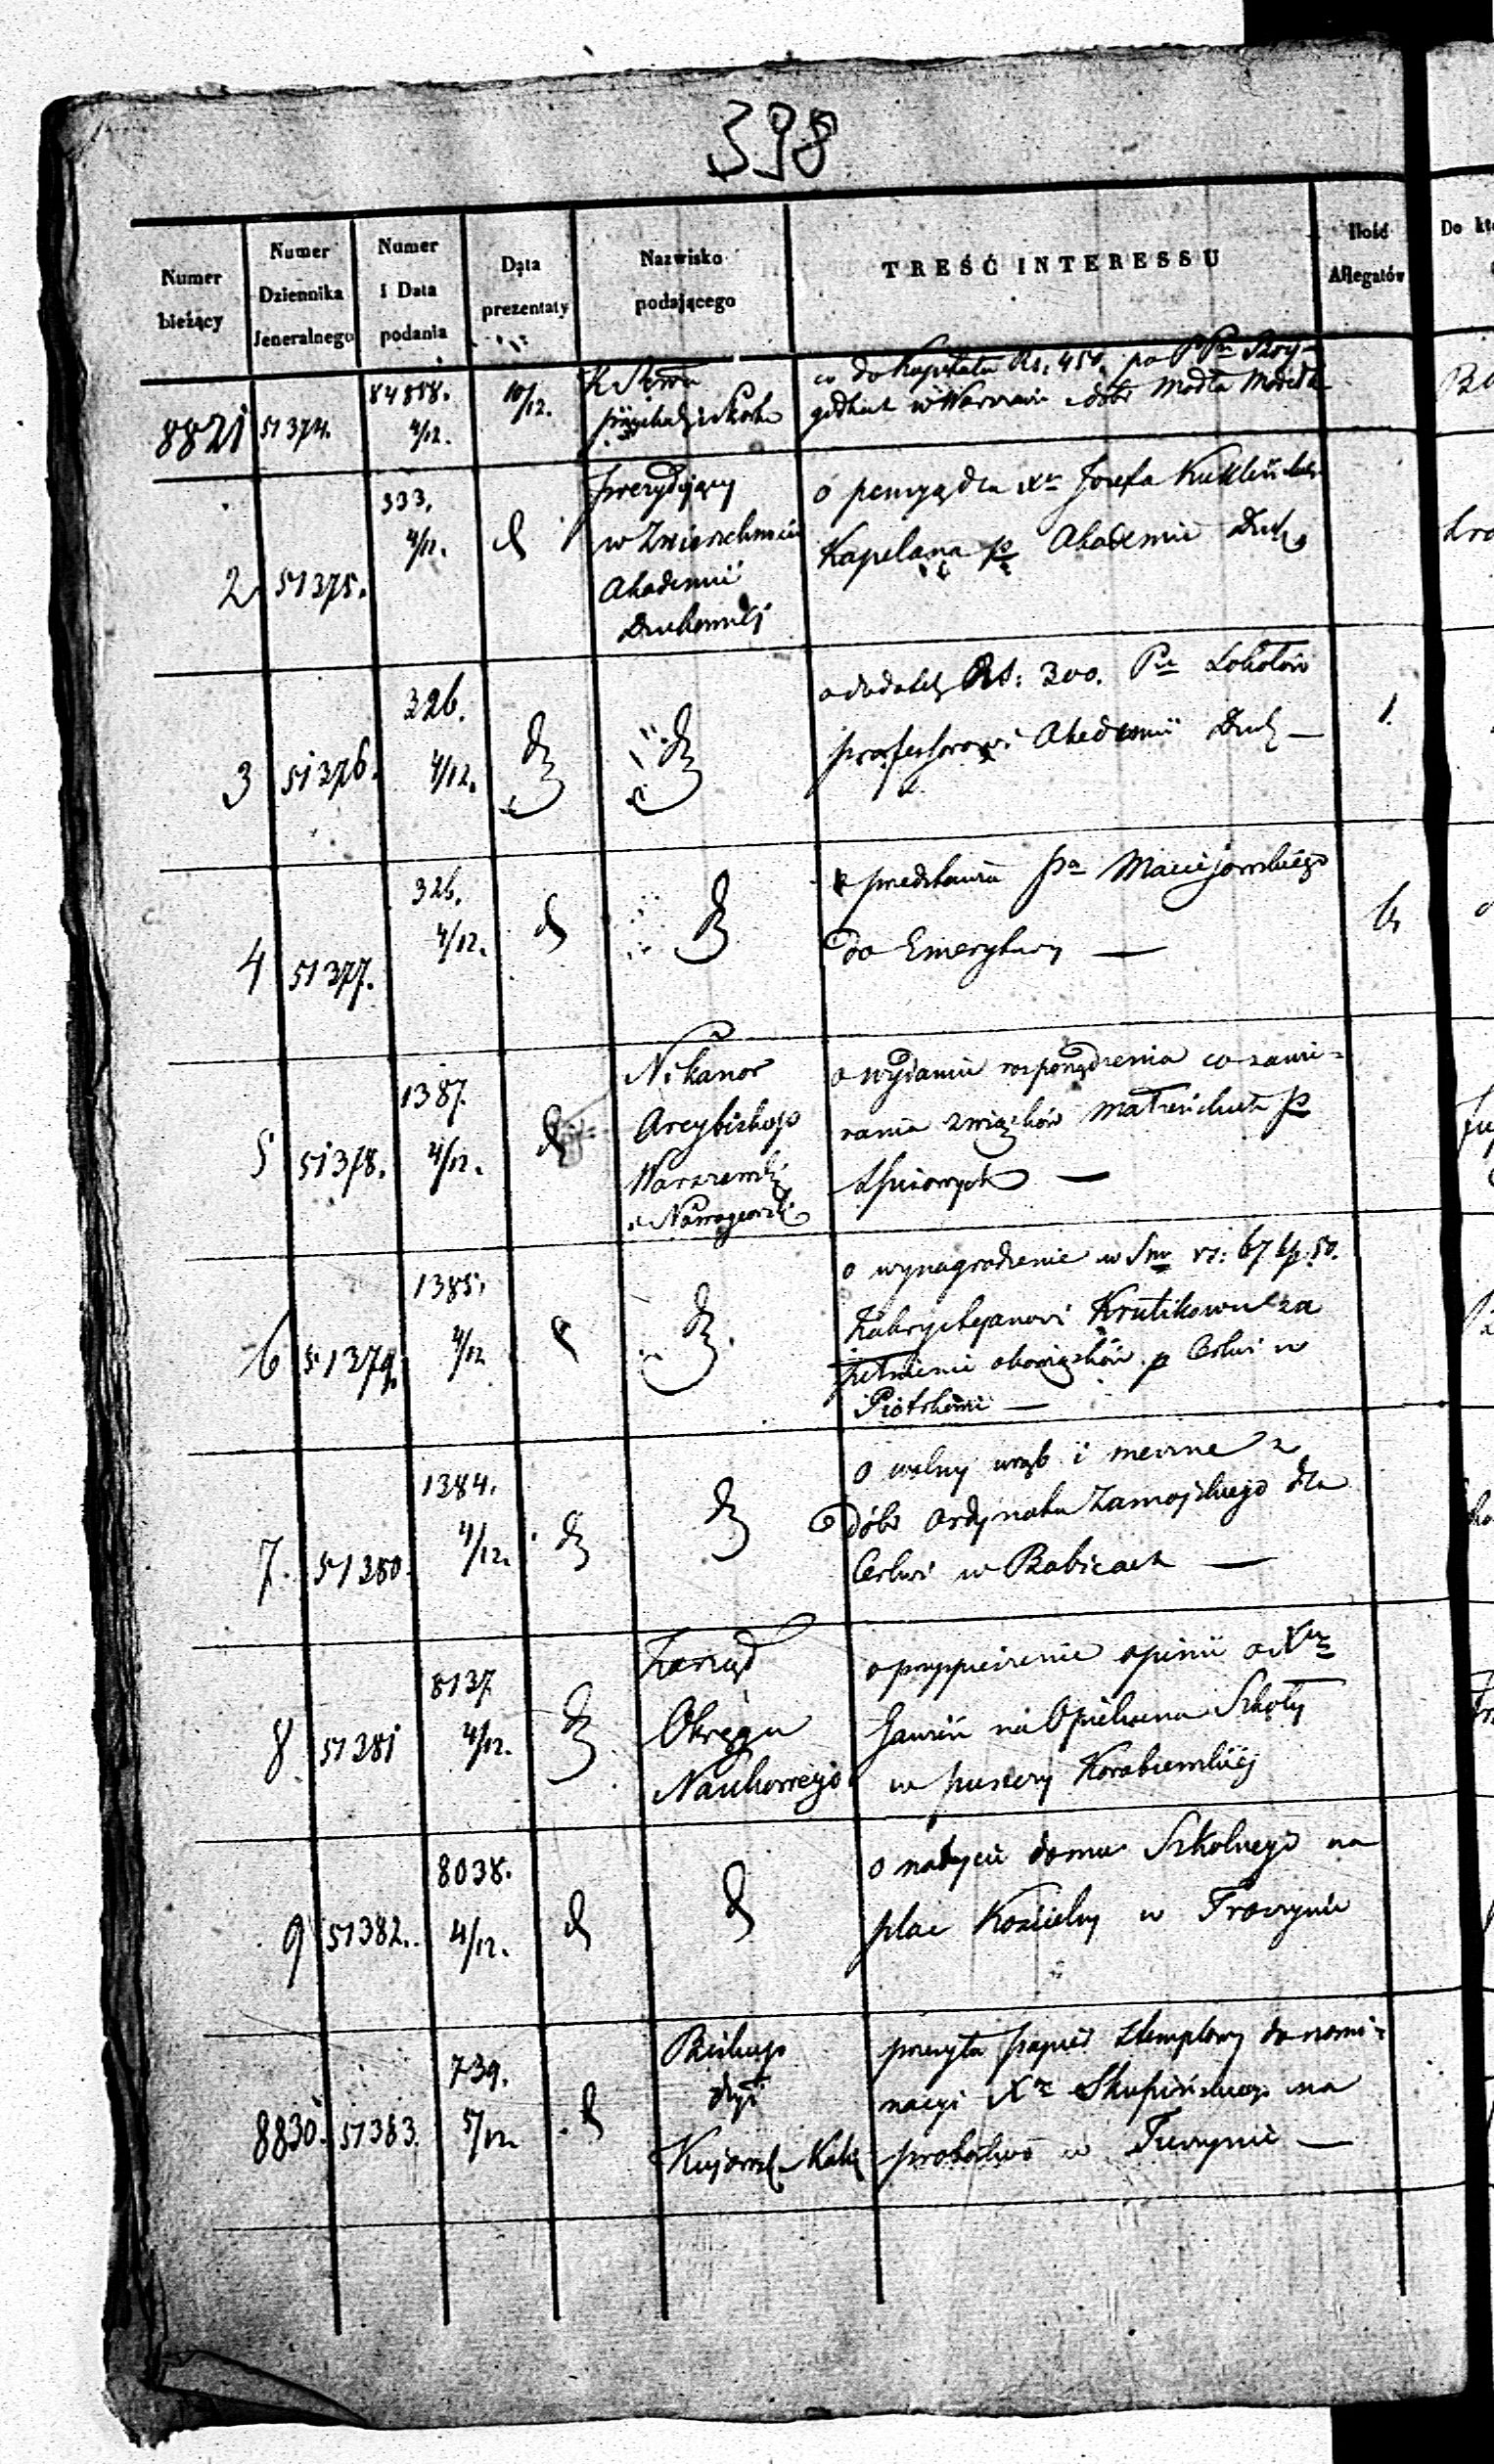 398
Numer bieżący
Numer Dziennika Jeneralnego
Numer i Data podania
Data prezentaty
Nazwisko podającego
TREŚĆ INTERESSU
Ilość Allegatów
Do
8821 51374. 84858. 4/12. 10/12.
co do Kapitału Rs. 450. po
w Warszawie dóbr Modła
2 51375. 333. 4/12. d
Prezydujący
w Zwierzchności
Akademii
Duchownej
o pieniądze Xa Jozefa
Kapelana p Akademii Duch
3 51376. 326. 4/12. d d
o dodatek Rs: 300.
professorowi Akademii Duch — 1.
4 51377. 326. 4/12. d d
przedstawia Pa Maciejowskiego
do Emerytury —
5 51378. 1387. 4/12. d
Nikanor
Arcybiskup
Warszawski
i Nowogeorg
o wydanie rozporządzenia co zawi=
rania związków małżeńskich p
—
6 51379. 1385. 4/12
o wynagrodzenie w rs: 67 kp. 50.
Zakrystyanowi Krutikowu za
pełnienie obowiązków p Cerkwi w
Piotrkowie —
7. 51380. 1384. 4/12. d d
o wolny wrąb i meszne z
dóbr Ordynata Zamojskiego dla
Cerkwi w Babicach —
8 51381 8137 4/12. d
Zarząd
Okręgu
Naukowego
o przyspieszenie opinii o Xu
na Opiekuna Szkoły
w puszczy Korabiewskiej
9 51382. 8038. 4/12. d d
o nabycie domu Szkolnego na
plac Kościelny w
8830. 51383. 739. 5/12. d
Biskup
dyi
Kujawsk Kali
przesyła papier stemplowy do nomi=
nacyi Xa Skupińskiego na
probostwo w —